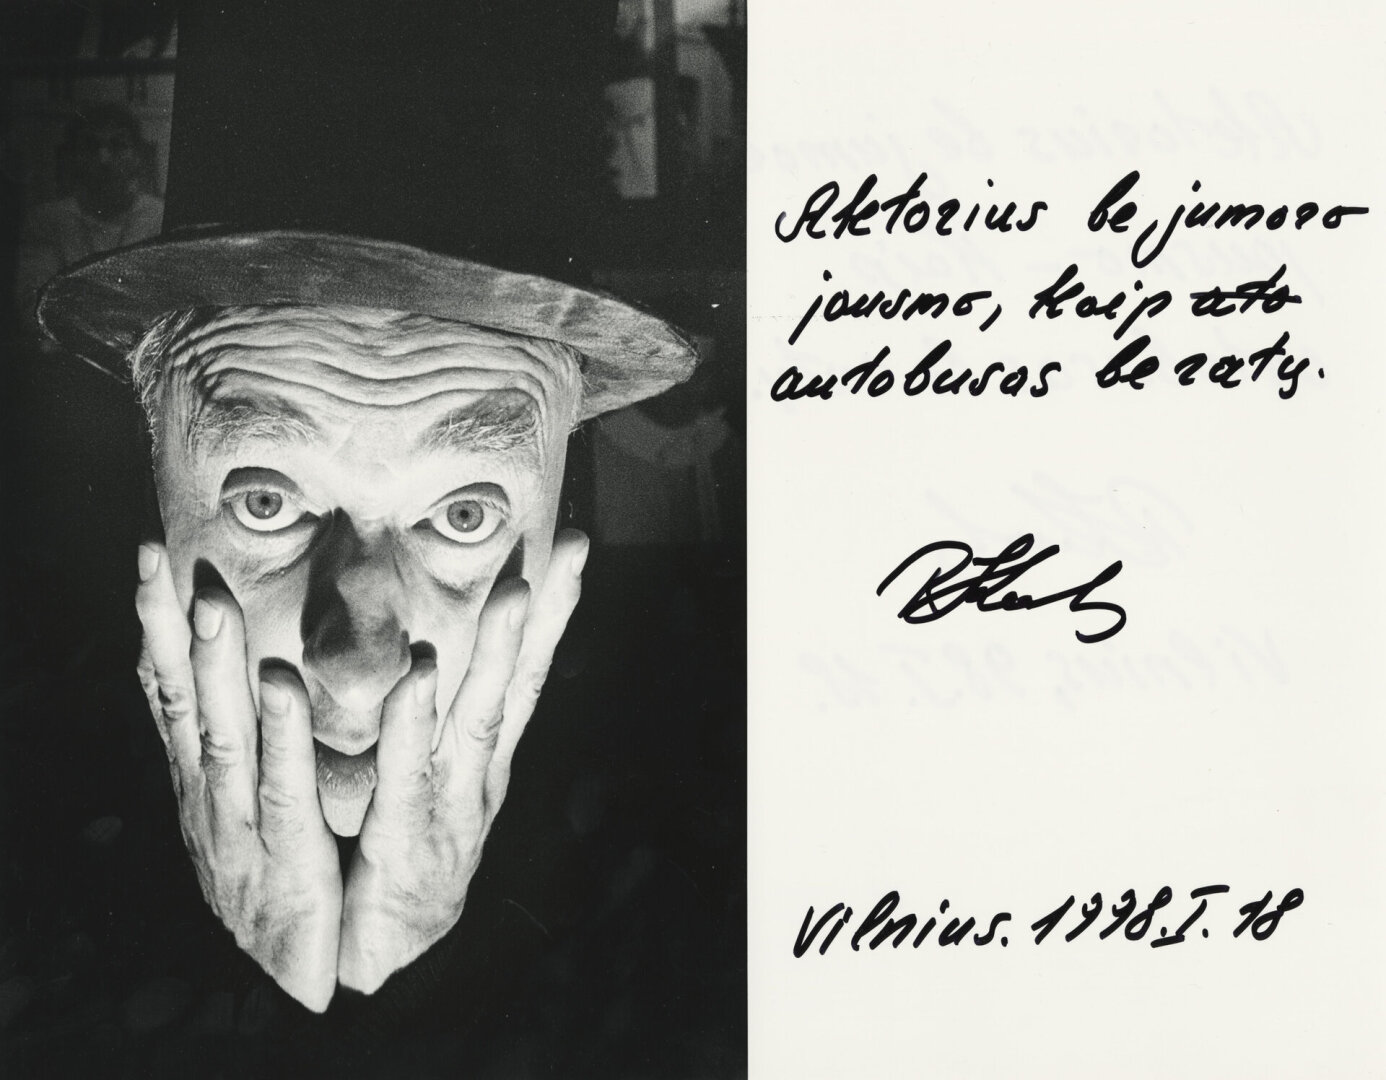 Aktorius be jumoro
jausmo, kaip ato
autobusas be ratų.
Vilnius. 1998.I.18